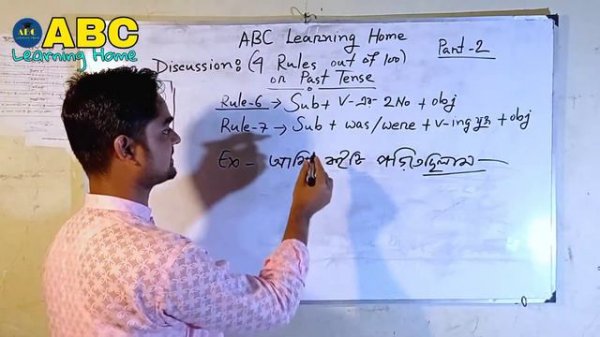 ABC
Learning Home
ABC Learning Home
Part-2
Discussion: (4 Rules out of 100)
on Past Tense
Rule-6 → Sub + V-এর 2No + obj
Rule-7 → Sub + was/were + v-ing যুক্ত + obj
Ex - আমি বইটি পড়িতেছিলাম